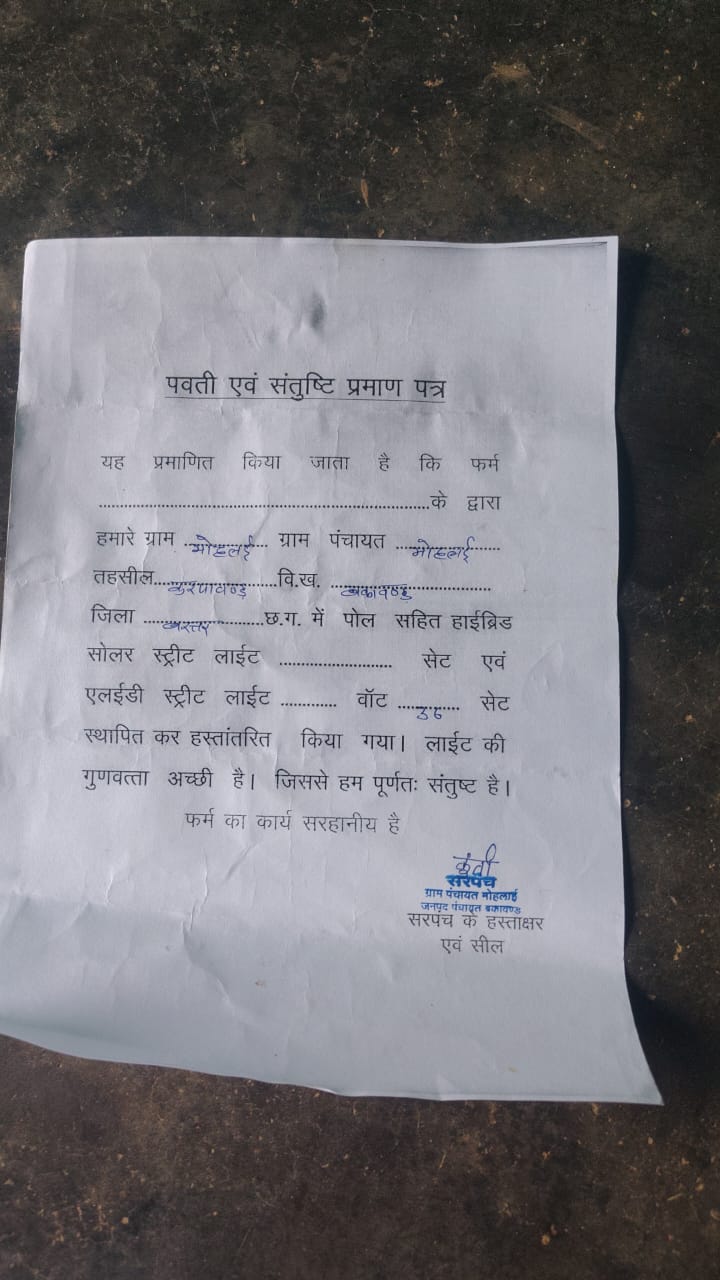 पवती एवं संतुष्टि प्रमाण पत्र
यह प्रमाणित किया जाता है कि फर्म
....................................................................के द्वारा
हमारे ग्राम ..मोहलई.. ग्राम पंचायत ..मोहलई..
तहसील..करपावण्ड..वि.ख. ..बकावण्ड..
जिला ..बस्तर..छ.ग. में पोल सहित हाईब्रिड
सोलर स्ट्रीट लाईट .......................... सेट एवं
एलईडी स्ट्रीट लाईट ............. वॉट ..36.. सेट
स्थापित कर हस्तांतरित किया गया। लाईट की
गुणवत्ता अच्छी है। जिससे हम पूर्णतः संतुष्ट है।
फर्म का कार्य सरहानीय है
सरपंच
ग्राम पंचायत मोहलाई
जनपद पंचायत बकावण्ड
सरपंच के हस्ताक्षर
एवं सील